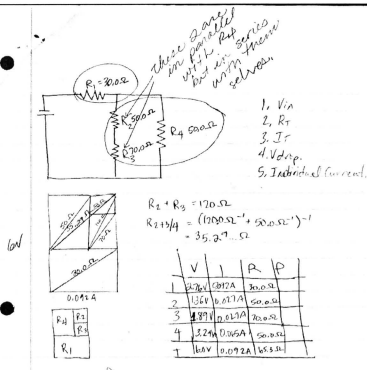 These 2 are
in parallel
with R4
but in series
with them
selves.
R₁=30.0Ω
R₂ 50.0Ω
R₃ 70.0Ω
R₄ 50.0Ω
1. Vin
2. RT
3. IT
4. Vdrop.
5. Individual Current.
R₂ + R₃ = 120Ω
R₂₊₃/₄ = (120.0Ω⁻¹ + 50.0Ω⁻¹)⁻¹
= 35.29...Ω
6V
50.0Ω
35.29Ω
50.0Ω
70.0Ω
30.0Ω
0.092A
R4 R2
R3
R1
V I R P
1 2.76V 0.092A 30.0Ω
2 1.36V 0.027A 50.0Ω
3 1.89V 0.027A 70.0Ω
4 3.24V 0.065A 50.0Ω
T 6.0V 0.092A 65.3Ω